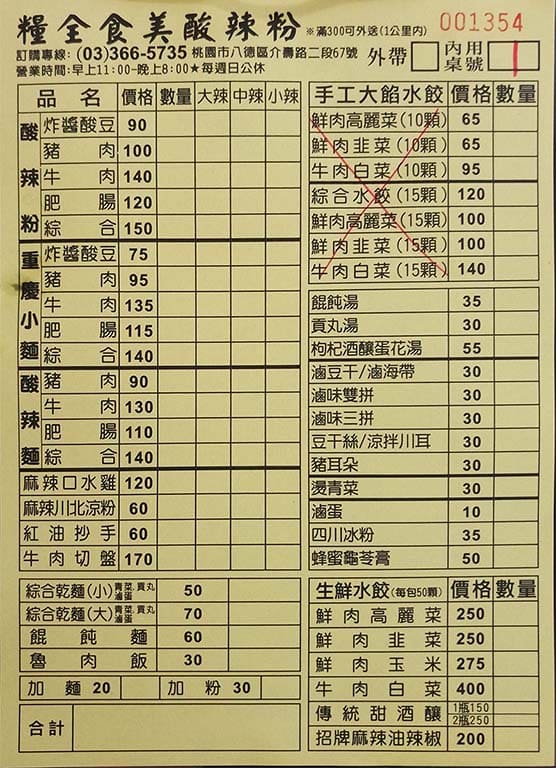 糧全食美酸辣粉 ※滿300可外送(1公里內) 001354
訂購專線: (03)366-5735 桃園市八德區介壽路二段67號 外帶 內用桌號 1
營業時間:早上11:00-晚上8:00★每週日公休
品名 價格 數量 大辣 中辣 小辣
酸辣粉
炸醬酸豆 90
豬肉 100
牛肉 140
肥腸 120
綜合 150
重慶小麵
炸醬酸豆 75
豬肉 95
牛肉 135
肥腸 115
綜合 140
酸辣麵
豬肉 90
牛肉 130
肥腸 110
綜合 140
麻辣口水雞 120
麻辣川北涼粉 60
紅油抄手 60
牛肉切盤 170
綜合乾麵(小) 青菜.貢丸 滷蛋 50
綜合乾麵(大) 青菜.貢丸 滷蛋 70
餛飩麵 60
魯肉飯 30
加麵 20 加粉 30
合計
手工大餡水餃 價格 數量
鮮肉高麗菜(10顆) 65
鮮肉韭菜(10顆) 65
牛肉白菜(10顆) 95
綜合水餃(15顆) 120
鮮肉高麗菜(15顆) 100
鮮肉韭菜(15顆) 100
牛肉白菜(15顆) 140
餛飩湯 35
貢丸湯 30
枸杞酒釀蛋花湯 55
滷豆干/滷海帶 30
滷味雙拼 30
滷味三拼 30
豆干絲/涼拌川耳 30
豬耳朵 30
燙青菜 30
滷蛋 10
四川冰粉 35
蜂蜜龜苓膏 50
生鮮水餃(每包50顆) 價格 數量
鮮肉高麗菜 250
鮮肉韭菜 250
鮮肉玉米 275
牛肉白菜 400
傳統甜酒釀 1瓶150 2瓶250
招牌麻辣油辣椒 200